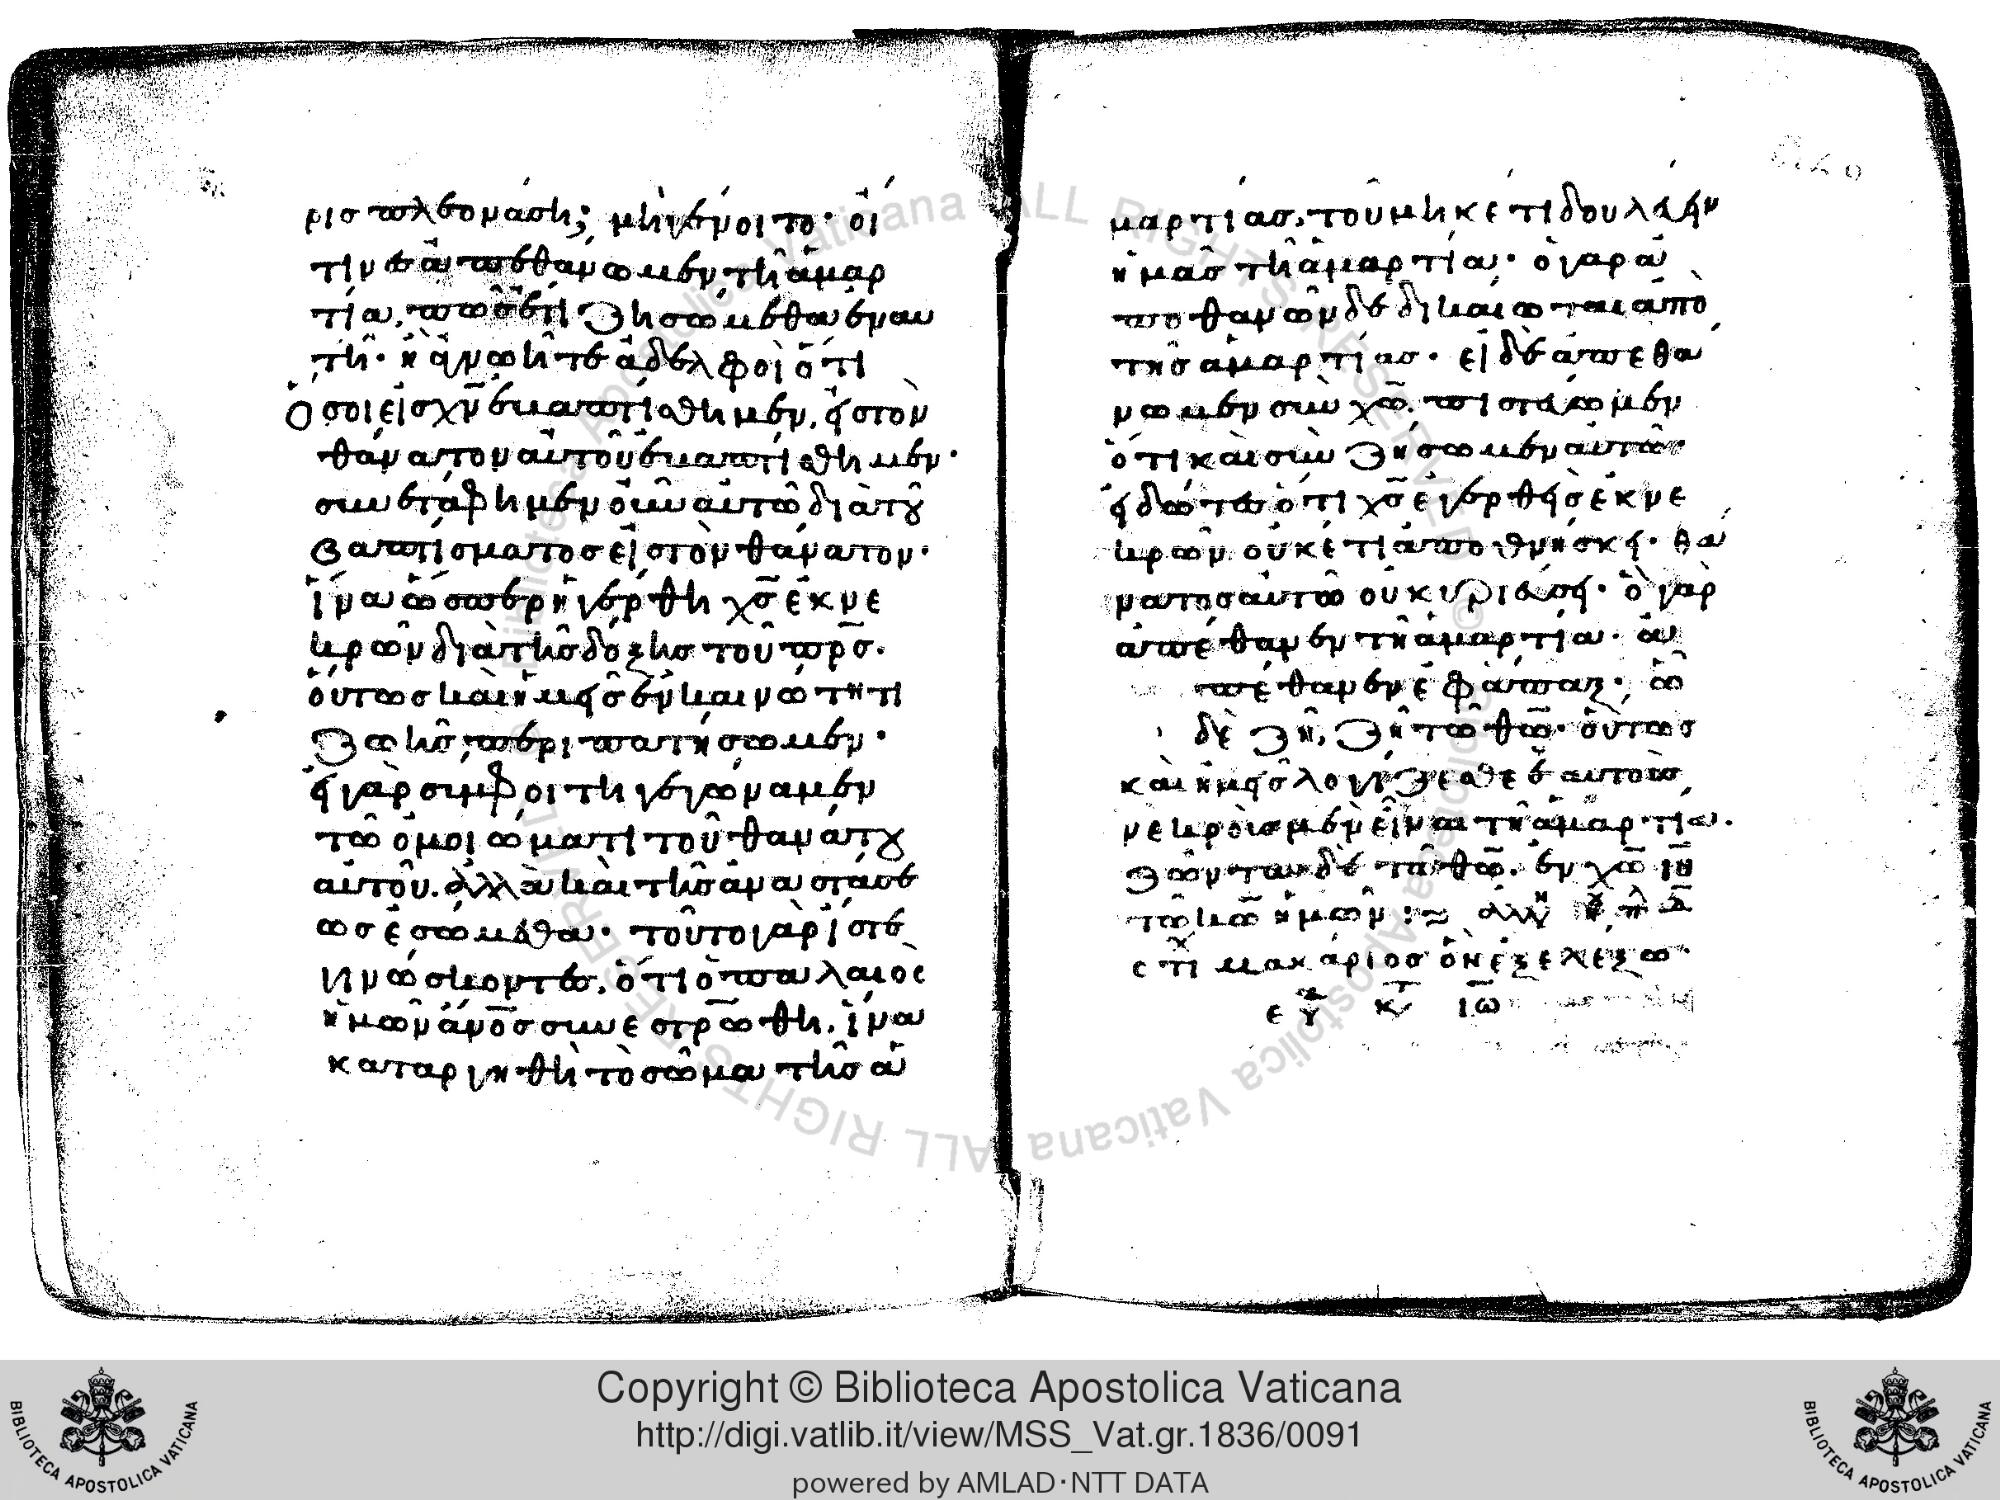 ρις πλεονάση; μὴ γένοιτο· οἵ
τινες ἀπεθάνωμεν τῆ ἁμαρ
τία, πῶς ἔτι ζήσωμεν θα ἐν αυ
τῆ· ἢ ἀγνωῆτε ἀδελφοὶ ὅτι
ὅσοι εἰς χν ἐβαπτίσθημεν, εἰς τὸν
θάνατον αὐτοῦ ἐβαπτίσθημεν·
συνετάφημεν οὖν αὐτῶ διὰ τοῦ
βαπτίσματος εἰς τὸν θάνατον·
ἵνα ὥσπερ ἠγέρθη χς ἐκ νε
κρῶν διὰ τῆς δόξης τοῦ πρς·
οὕτως καὶ ἡμεῖς ἐν καινώτητι
ζωῆς περιπατήσωμεν·
εἰ γὰρ σύμφοιτη γεγώναμεν
τῶ ὁμοιώματι τοῦ θανάτου
αὐτοῦ. ἀλλὰ καὶ τῆς ἀναστάσε
ως ἐσώμεθα· τοῦτο γὰρ ἴστε
γινώσκοντες, ὅτι ὁ παλαιὸς
ἡμῶν ἄνος συνεστρώθη, ἵνα
καταργηθῆ τὸ σῶμα τῆς ἁ
μαρτίας, τοῦ μηκέτι δουλεύειν
ἡμᾶς τῆ ἁμαρτία· ὁ γὰρ ἀ
ποθανῶν δεδικαίωται ἀπὸ
τῆς ἁμαρτίας· εἰ δὲ ἀπεθά
νωμεν σὺν χω, πιστεύωμεν
ὅτι καὶ σὺν ζήσωμεν αὐτῶ·
εἰδώτες ὅτι χς ἐγερθεὶς ἐκ νε
κρῶν οὐκέτι ἀποθνήσκει· θά
νατος αὐτῶ οὐ κυριεύσει· ὁ γὰρ
ἀπέθανεν τῆ ἁμαρτία· ἀ
πέθανεν ἐφάπαξ· ὧ
δὲ ζῆ, ζῆ τῶ θω· οὕτως
καὶ ἡμεῖς λογίζεσθε ἑαυτοὺς
νεκροὺς μὲν εἶναι τῆ ἁμαρτία·
ζῶνταν δὲ τῶ θω, ἐν χω ιυ
τῶ κω ἡμῶν
στι μακάριος ὃν ἐξελέξω
ευ κτ ιω